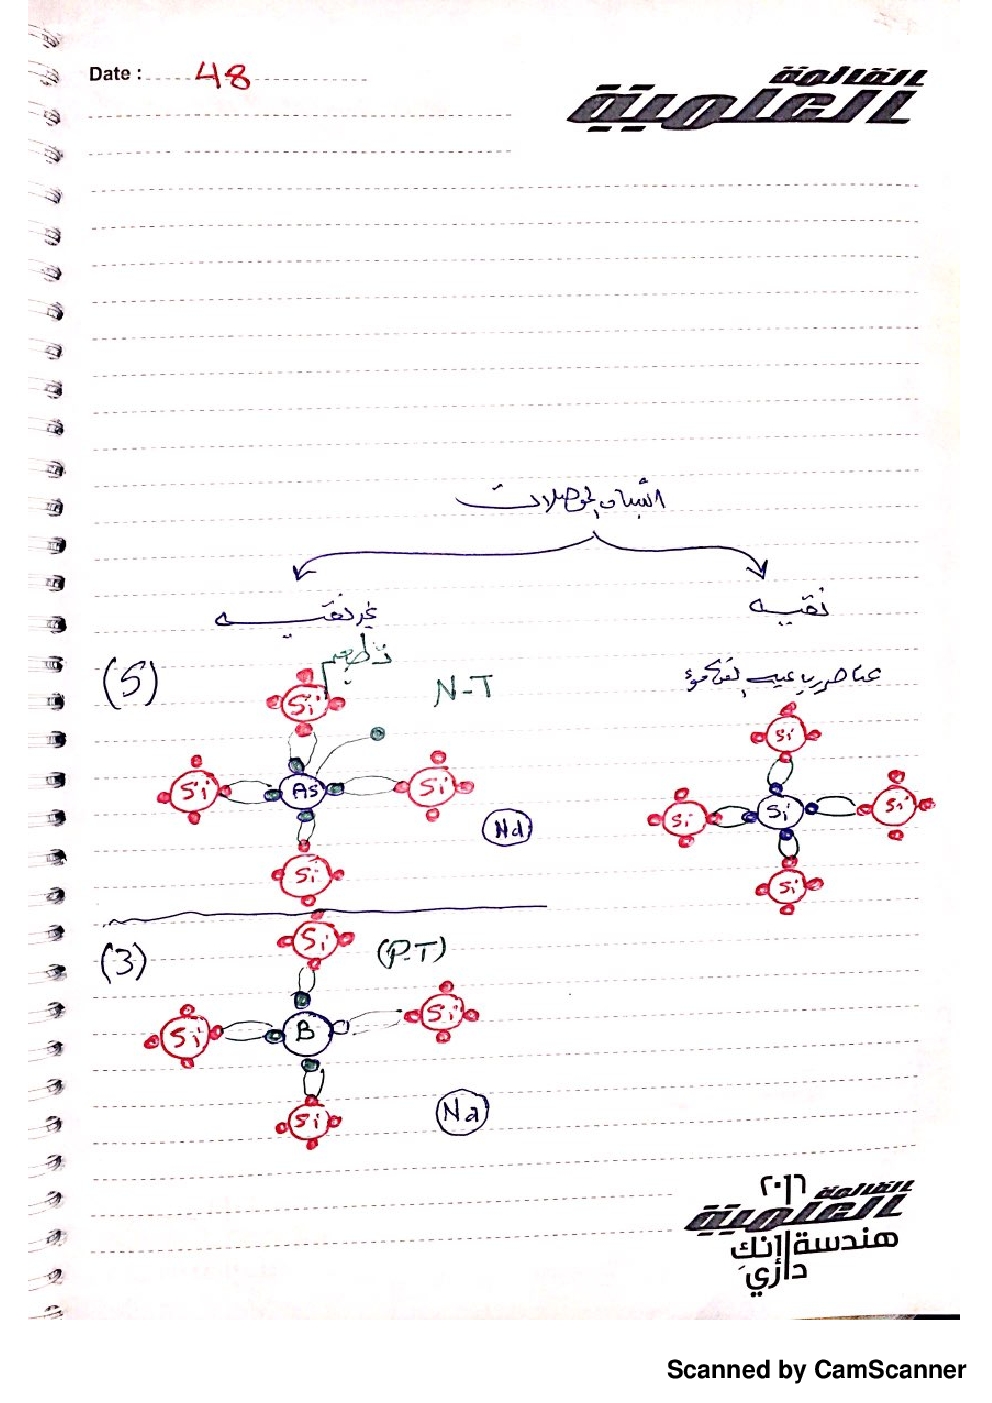 Date : 48
القائمة
العلمية
أشباه الموصلات
نقيه
غير نقيه
تطعيم
(5)
N-T
عناصر رباعيه
Si
Si
Si As Si
Nd
Si
Si
Si Si Si
Si
(3)
Si
(P-T)
Si B Si
Si
Na
٢٠١٦
القائمة
العلمية
هندسة إنك
دائري
Scanned by CamScanner